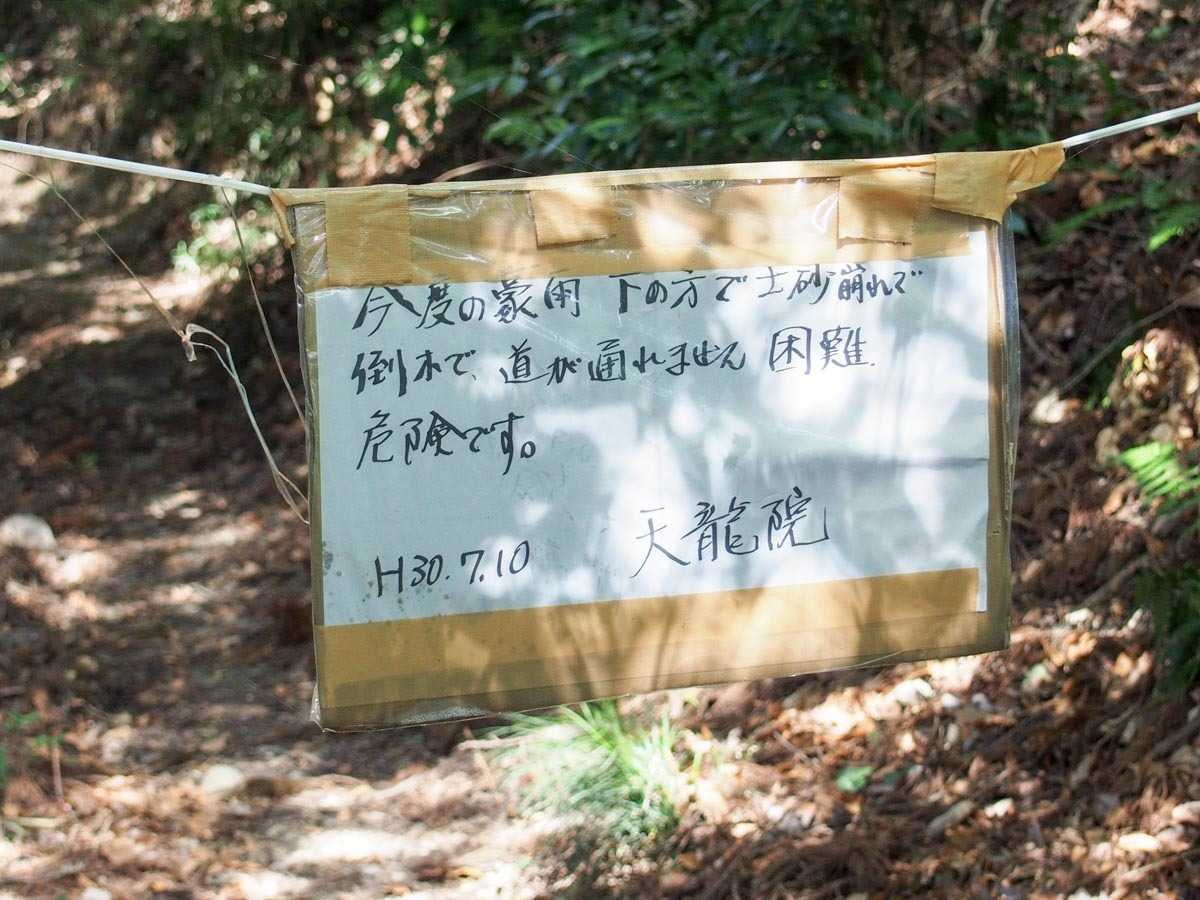 今度の豪雨 下の方で土砂崩れで
倒木で、道が通れません 困難.
危険です。
H30.7.10 天龍院